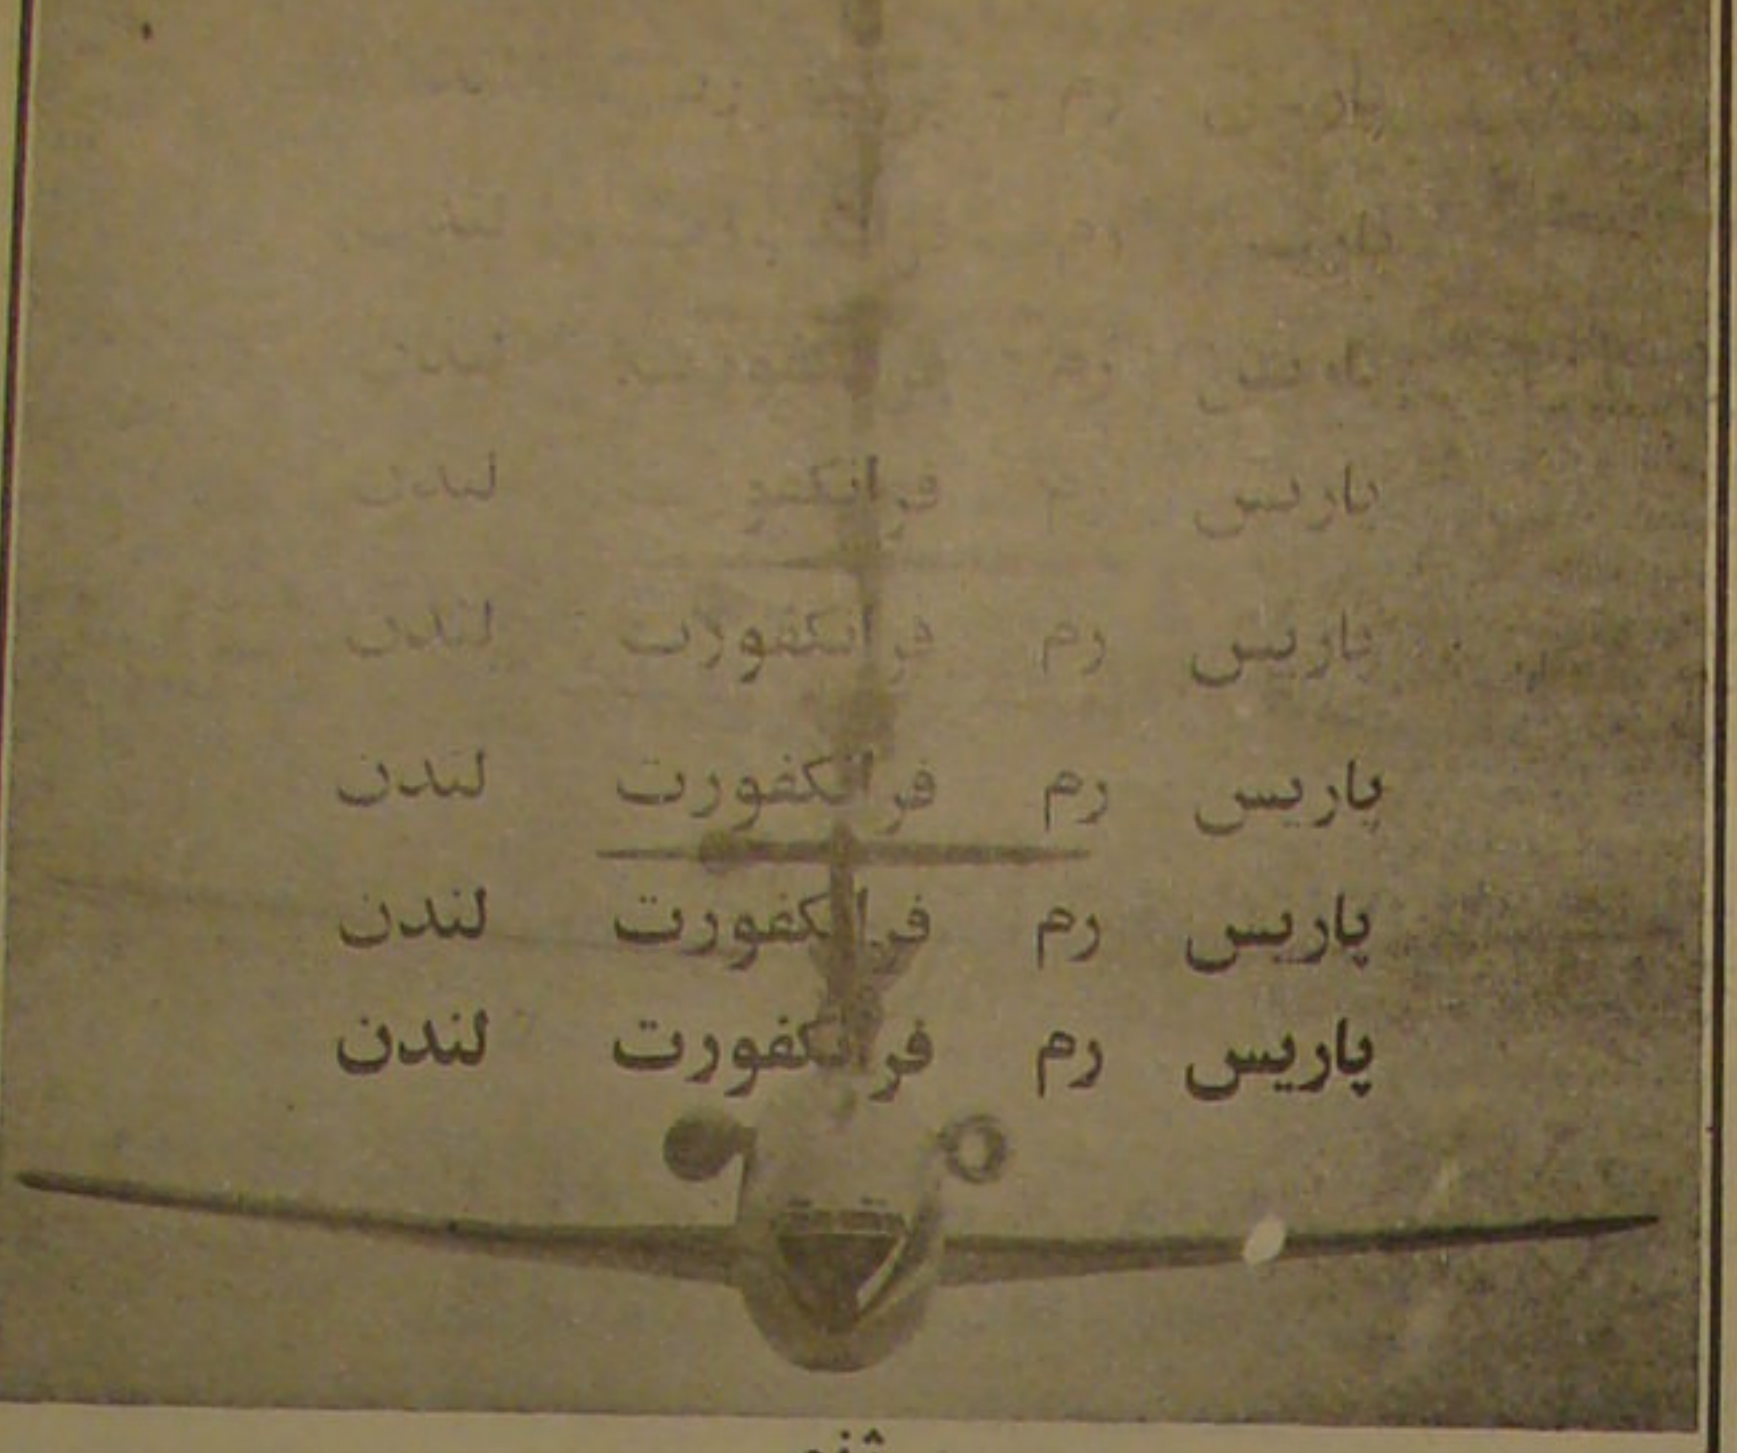 پاریس رم
پاریس رم
پاریس رم فرانکفورت لندن
پاریس رم فرانکفو لندن
پاریس رم فرانکفورت لندن
پاریس رم فرانکفورت لندن
پاریس رم فرانکفورت لندن
پاریس رم فرانکفورت لندن